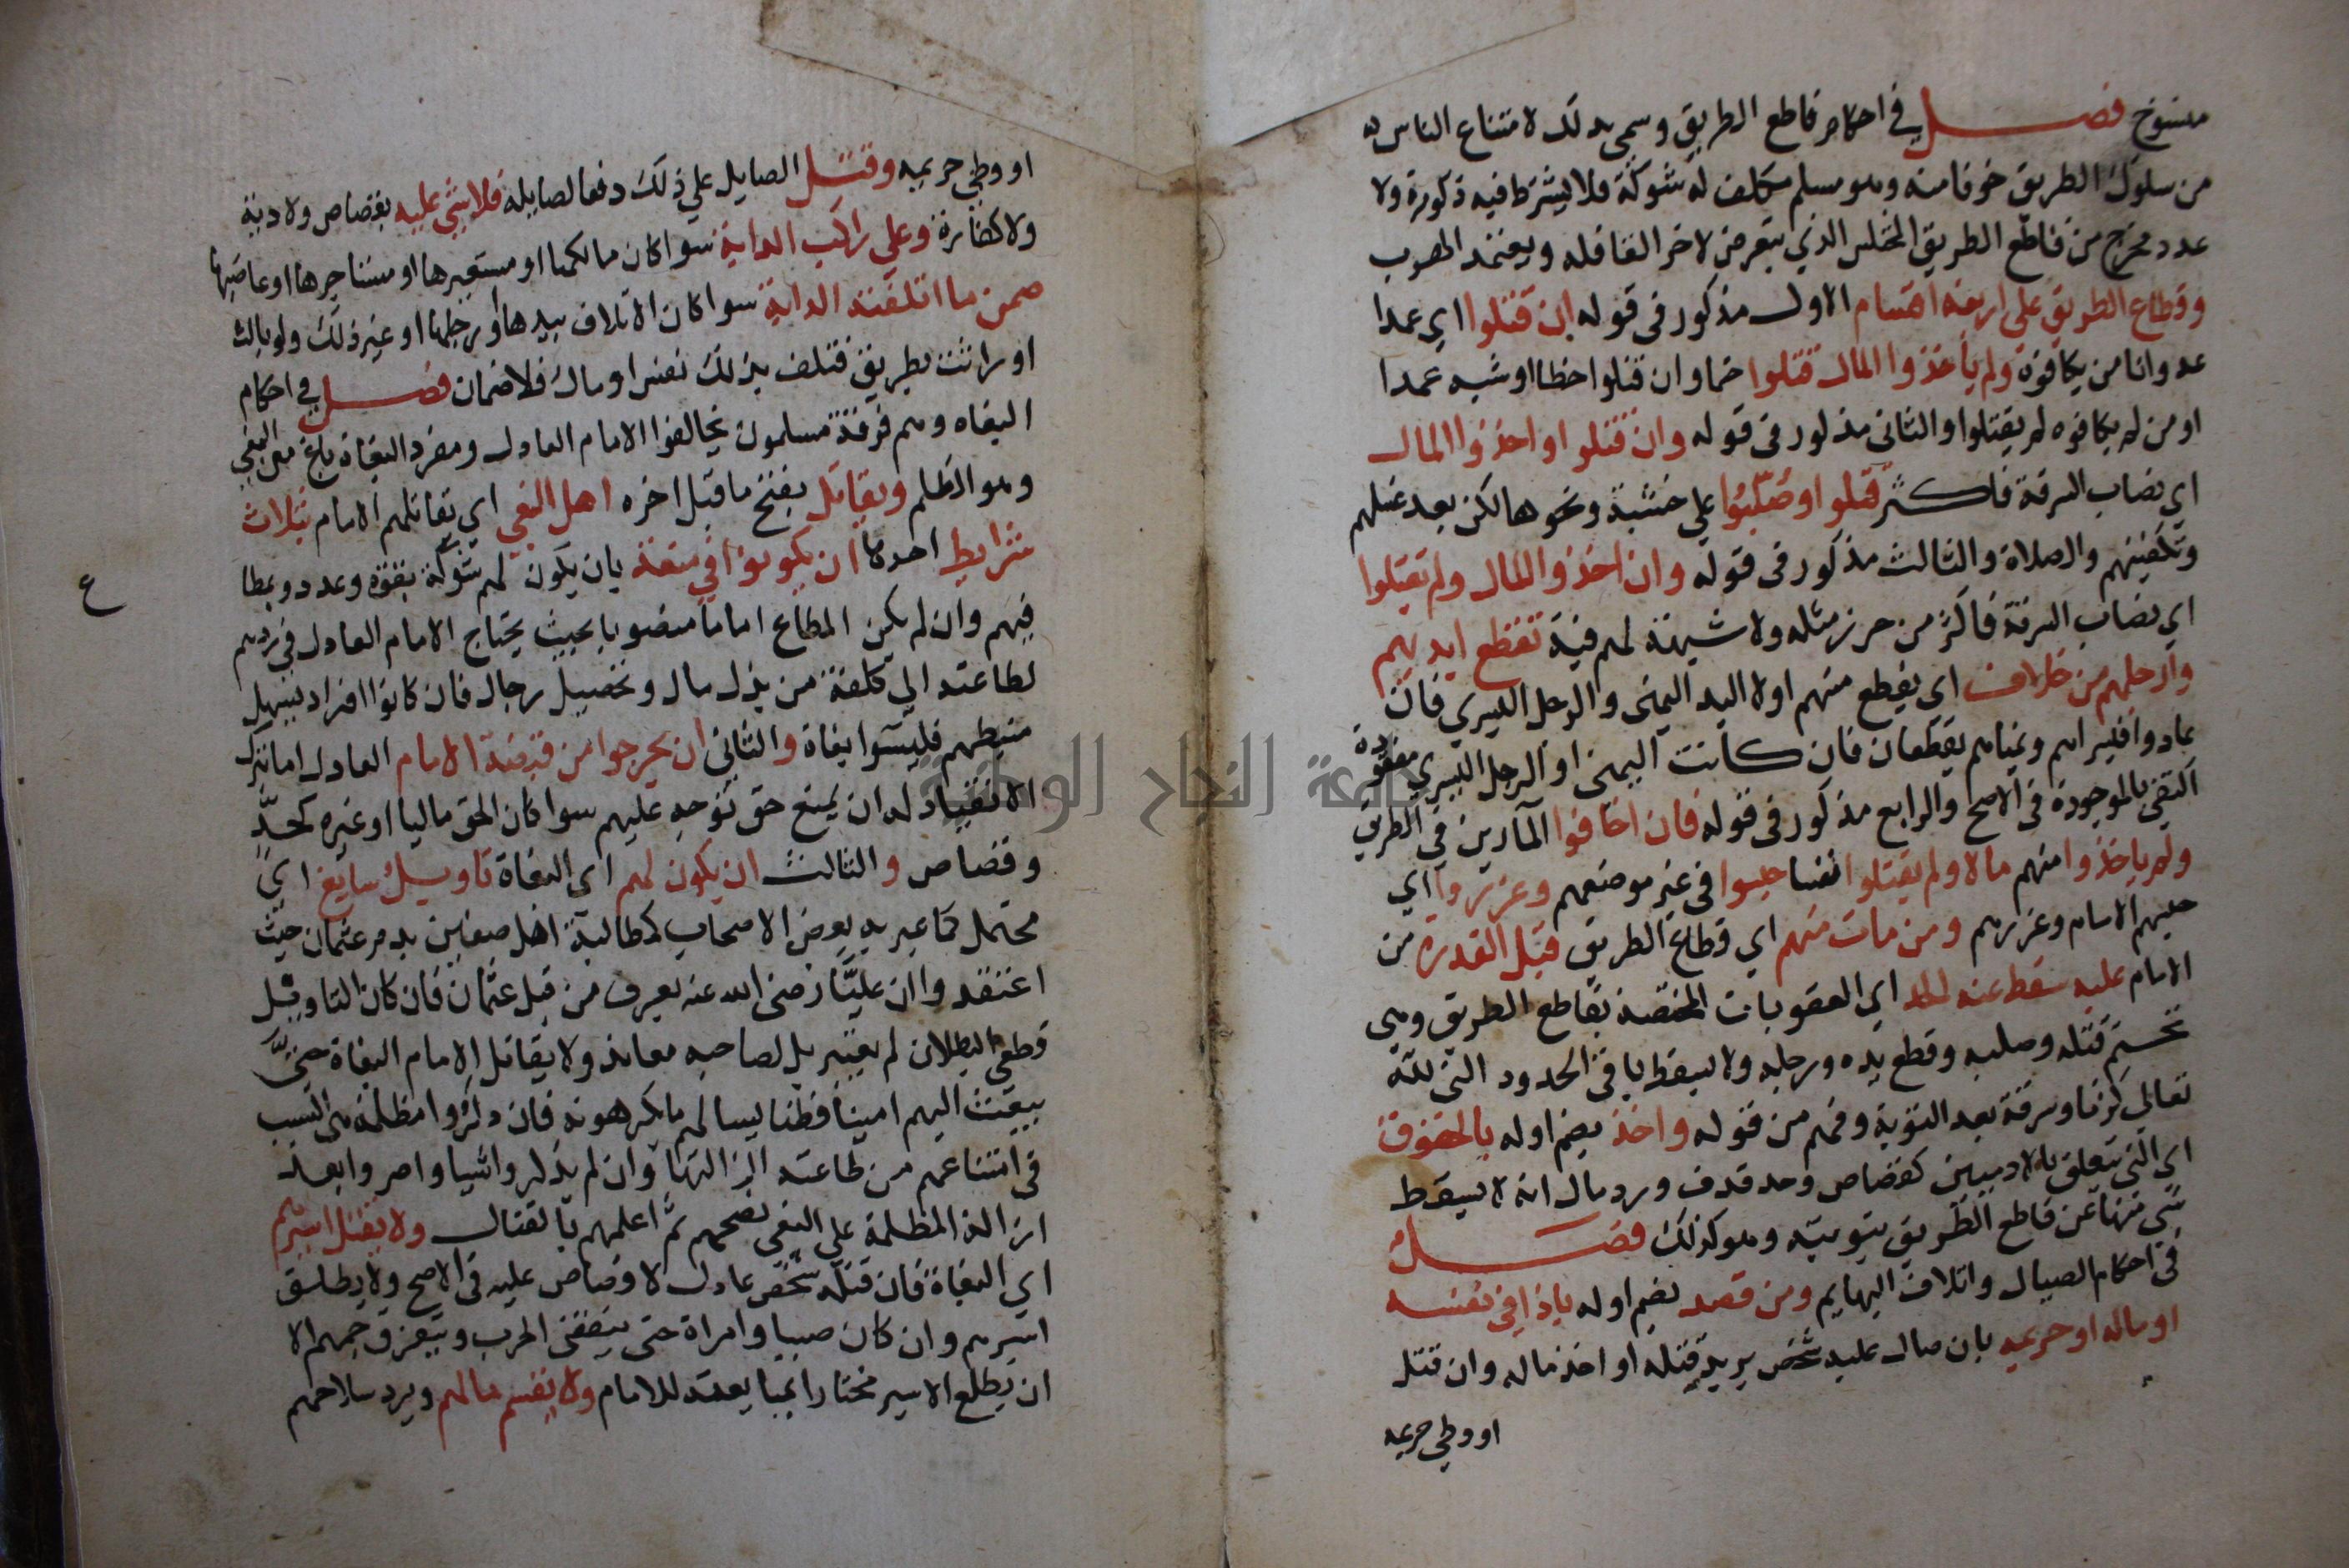 منسوخ فصل في احكام قاطع الطريق وسمي بذلك لامتناع الناس
من سلوك الطريق خوفا منه وهو مسلم مكلف له شوكة فلا يشترط فيه ذكورة ولا
عدد فخرج من قاطع الطريق المختلس الذي يتعرض لاخر القافله ويعتمد الهرب
وقطاع الطريق على اربعة اقسام الاول مذكور في قوله ان قتلوا اي عمدا
عدوانا من يكافوه ولم ياخذوا المال قتلوا حتما وان قتلوا خطا او شبه عمدا
او من لم يكافوه لم يقتلوا والثاني مذكور في قوله وان قتلوا او اخذوا المال
اي نصاب السرقة فاكثر قتلوا وصلبوا على خشبة ونحوها لكن بعد غسلهم
وتكفينهم والصلاة والثالث مذكور في قوله وان اخذوا المال ولم يقتلوا
اي نصاب السرقة فاكثر من حرز مثله ولا شبهة لهم فية تقطع ايديهم
وارجلهم من خلاف اي يقطع منهم اولا اليد اليمنى والرجل اليسري فان
عادوا فيسراهم ويمناهم يقطعان فان كانت اليمنى او الرجل اليسري مفقودة
اكتفي بالموجودة في الاصح والرابع مذكور في قوله فان اخافوا المآرين في الطريق
ولم ياخذوا منهم مالا ولم يقتلوا نفسا حبسوا في غير موضعهم وعزروا اي
حبسهم الامام وعزرهم ومن مات منهم اي قطاع الطريق قبل القدرة من
الامام عليه سقط عنه الحد اي العقوبات المختصة بقاطع الطريق وهي
تحتم قتله وصلبه وقطع يده ورجله ولا يسقط باقي الحدود التي لله
تعالي كزنا وسرقة بعد التوبة وفهم من قوله واخذ بضم اوله بالحقوق
اي التي تتعلق بالادميين كقصاص وحد قذف ورد مال انه لا يسقط
شي منها عن قاطع الطريق بتوبته وهو كذلك فصل
في احكام الصيال واتلاف البهايم ومن قصد بضم اوله باذا في نفسه
او ماله او حريمه بان صال عليه شخص يريد قتله او اخذ ماله وان قتل
او وطي حريمه
او وطي حريمه وقتل الصايل علي ذلك دفعا لصايله فلا شي عليه بقصاص ولا دية
ولا كفارة وعلى راكب الدابة سوا كان مالكها او مستعيرها او مستاجرها او غاصبها
ضمن ما اتلفته الدابة سوا كان الاتلاف بيدها او رجلها او غير ذلك ولو بالت
او راثت بطريق فتلف بذلك نفس او مال فلا ضمان فصل في احكام
البغاه وهم فرقة مسلمون يخالفوا الامام العادل ومفرد البغاة باغ من البغي
وهو الظلم ويقاتل بفتح ما قبل اخره اهل البغي اي يقاتلهم الامام بثلاث
شرايط احدها ان يكونوا في منعة بان يكون لهم شوكة بقوة وعدد وبمطا
ع
فيهم وان لم يكن المطاع اماما منصوبا بحيث يحتاج الامام العادل في ردهم
لطاعته الي كلفة من بذل مال وتحصيل رجال فان كانوا افراد يسهل
ضبطهم فليسوا بغاة والثاني ان يخرجوا من قبضة الامام العادل اما بترك
الانقياد له او بمنع حق توجه عليهم سوا كان الحق ماليا او غيره كحدّ
وقصاص والثالث ان يكون لهم اي البغاة تاويل سايغ اي
محتمل كما عبر به بعض الاصحاب كمطالبة اهل صفين بدم عثمان حيث
اعتقدوا ان عليّا رضي الله عنه يعرف من قتل عثمان فان كان التاويل
قطعي البطلان لم يعتبر بل لصاحبه معاند ولا يقاتل الامام البغاة حتى
يبعث اليهم امينا فطنا يسالهم ما يكرهونه فان ذكروا مظلمة هي السبب
في امتناعهم من طاعته ازالتها وان لم يذكروا شيا واصروا بعد
ازالة المظلمة علي البغي نصحهم ثم اعلمهم بالقتال ولا يقتل اسيرهم
اي البغاة فان قتله شخص عادل لا قصاص عليه في الاصح ولا يطلق
اسيرهم وان كان صبيا وامراة حتى ينقضي الحرب ويتفرق جمعهم الا
ان يطلع الاسير مختارا بمبايعته للامام ولا يقسم مالهم ويرد سلاحهم
جامعة النجاح الوطنية